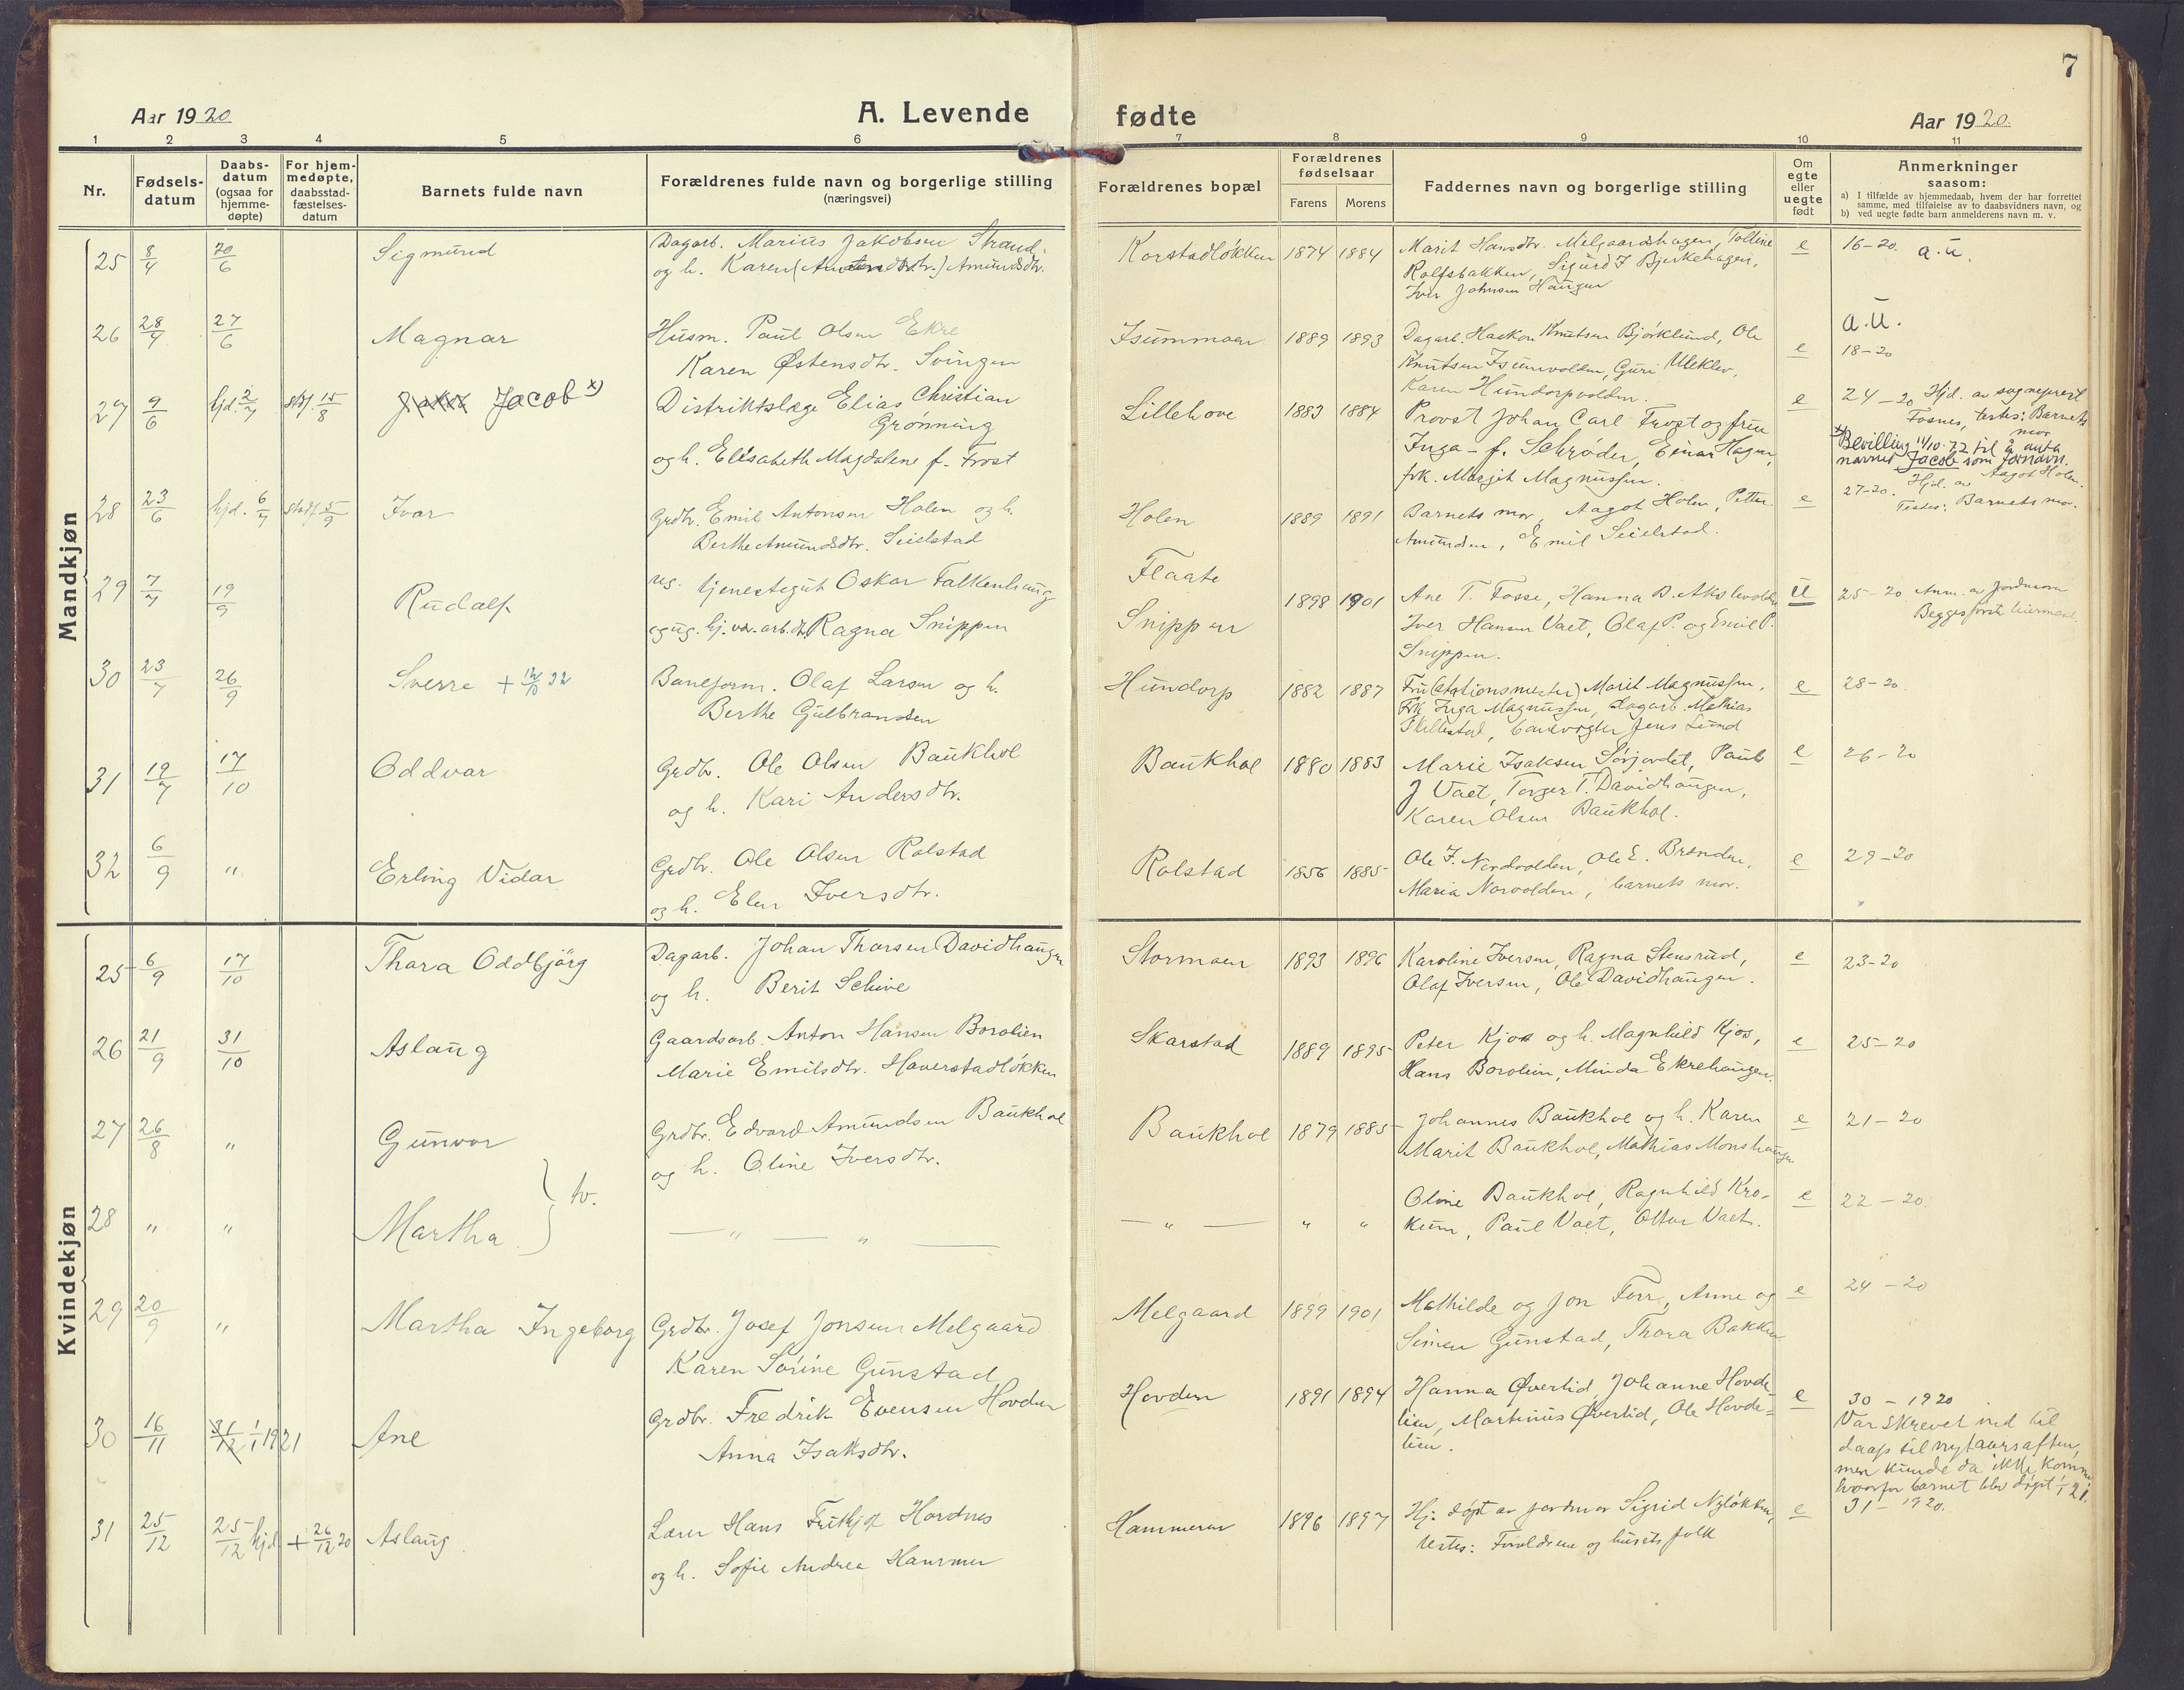 7
Aar 1920
A. Levende
fødte
Aar 1920.
1 2 3 4 5 6 7 8 9 10 11
Nr.
Fødsels-
datum
Daabs-
datum
(ogsaa for
hjemme-
døpte)
For hjem-
medøpte,
daabsstad-
fæstelses-
datum
Barnets fulde navn
Forældrenes fulde navn og borgerlige stilling
(næringsvei)
Forældrenes bopæl
Forældrenes
fødselsaar
Farens
Morens
Faddernes navn og borgerlige stilling
Om
egte
eller
uegte
født
Anmerkninger
saasom:
a) I tilfælde av hjemmedaab, hvem der har forrettet
samme, med tilføielse av to daabsvidners navn, og
b) ved uegte fødte barn anmelderens navn m. v.
Mandkjøn
25 8/4 20/6 Sigmund
Dagarb. Marius Jakobsen Strand.
og h. Karen Amundsdtr.
Korstadløkken 1874 1884
Marit Hansdtr. Melgaardshagen, Tolline
Rolfsbakken, Sigurd J Bjerkehagen,
Iver Johnsen Haugen
e 16-20. a.u.
26 28/4 27/6 Magnar
Husm. Paul Olsen Ekre
Karen Østensdtr. Svingen
Isummoen 1889 1893
Dagarb. Haakon Knutsen Bjørklund, Ole
Knutsen Isumvolden, Guri Uleklev,
Karen Hundorpvolden.
e
a.u.
18-20
27 9/6 hjd. 2/7 stdf. 15/8 Jacob x)
Distriktslæge Elias Christian
Grønning
og h. Elisabeth Magdalene f. Frost
Lillehove 1883 1884
Provst Johan Carl Frost og frue
Inga - f. Schrøder, Einar Hagen,
frk. Margit Magnussen.
e
24-20 Hjd. av sogneprest
Fosnes, testes: Barnets
mor
x) Bevilling 11/10-72 til å anta
navnet Jacob som fornavn.
28 23/6 hjd. 6/7 stdf. 5/9 Ivar
Grdbr. Emil Antonsen Holen og h.
Berthe Amundsdtr. Seielstad
Holen 1889 1891
Barnets mor, Aagot Holen, Petter
Amundsen, Emil Seielstad.
e
27-20. Hjd. av Aagot Holen.
Testes: Barnets mor.
29 7/7 19/9 Rudolf
ug. tjenestegut Oskar Falkenhaug
og ug. Ragna Snippen
Flaate
Snippen
1898 1901
Ane T. Fosse, Hanna
Iver Hansen Vaet, Olaf P. og Emil P.
Snippen.
u
25-20 Anm. av Jordmor
Begges første leiermaal.
30 23/7 26/9 Sverre + 32
Baneform. Olaf Larsen og h.
Berthe Gulbrandsen
Hundorp 1882 1887
Fru (stationsmester) Marit Magnussen,
Frk Inga Magnussen, dagarb. Mathias
banevogter Jens Lund
e 28-20.
31 19/7 17/10 Oddvar
Grdbr. Ole Olsen Baukhol
og h. Kari Andersdtr.
Baukhol 1880 1883
Marie Isaksen Sørjordet, Paul
J Vaet, Torger T. Davidhaugen,
Karen Olsen Baukhol.
e 26-20
32 6/9 " Erling Vidar
Grdbr. Ole Olsen Rolstad
og h. Elen Iversdtr.
Rolstad 1856 1885
Ole J. Nordvolden, Ole E. Brenden,
Maria Norvolden, barnets mor.
e 29-20
Kvindekjøn
25 6/9 17/10 Thora Oddbjörg
Dagarb. Johan Thorsen Davidhaugen
og h. Berit Schive
Stormoen 1893 1896
Karoline Iversen, Ragna Stensrud,
Olaf Iversen, Ole Davidhaugen.
e 23-20
26 21/9 31/10 Aslaug
Gaardsarb. Anton Hansen Borolien
Marie Emilsdtr. Haverstadløkken
Skarstad 1889 1895
Peter Kjos og h. Magnhild Kjos,
Hans Borolien, Minda Ekrehaugen.
e 25-20
27 26/8 " Gunvor
Grdbr. Edvard Amundsen Baukhol
og h. Oline Iversdtr.
Baukhol 1879 1885
Johannes Baukhol og h. Karen
Marit Baukhol, Mathias Monshaugen
e 21-20
28 " " Martha } tv.
— " — " —
— " — " "
Oline Baukhol, Ragnhild Kro-
kum, Paul Vaet, Ottar Vaet.
e 22-20.
29 20/9 " Martha Ingeborg
Grdbr. Josef Jonsen Melgaard
Karen Sörine Gunstad
Melgaard 1899 1901
Mathilde og Jon Forr, Anne og
Simen Gunstad, Thora Bakken
e 24-20
30 16/11 31/12 1/1 1921 Ane
Grdbr. Fredrik Evensen Hovden
Anna Isaksdtr.
Hovden 1891 1894
Hanna Øverlid, Johanne Hovde-
lien, Martinus Øverlid, Ole Hovde-
lien.
e 30-1920
Var skrevet ind til
daap til nytaarsaften,
men kunde da ikke komme
hvorfor barnet blev døpt 1/1 21.
31 25/12 25/12 hjd + 26/12 20 Aslaug.
Lærer Hans Fritjof Hordnes
og h. Sofie Andrea Hammer
Hammeren 1896 1897
Hj. døpt av jordmor Sigrid Nyløkken,
testes: Forældrene og husets folk
e 31-1920.